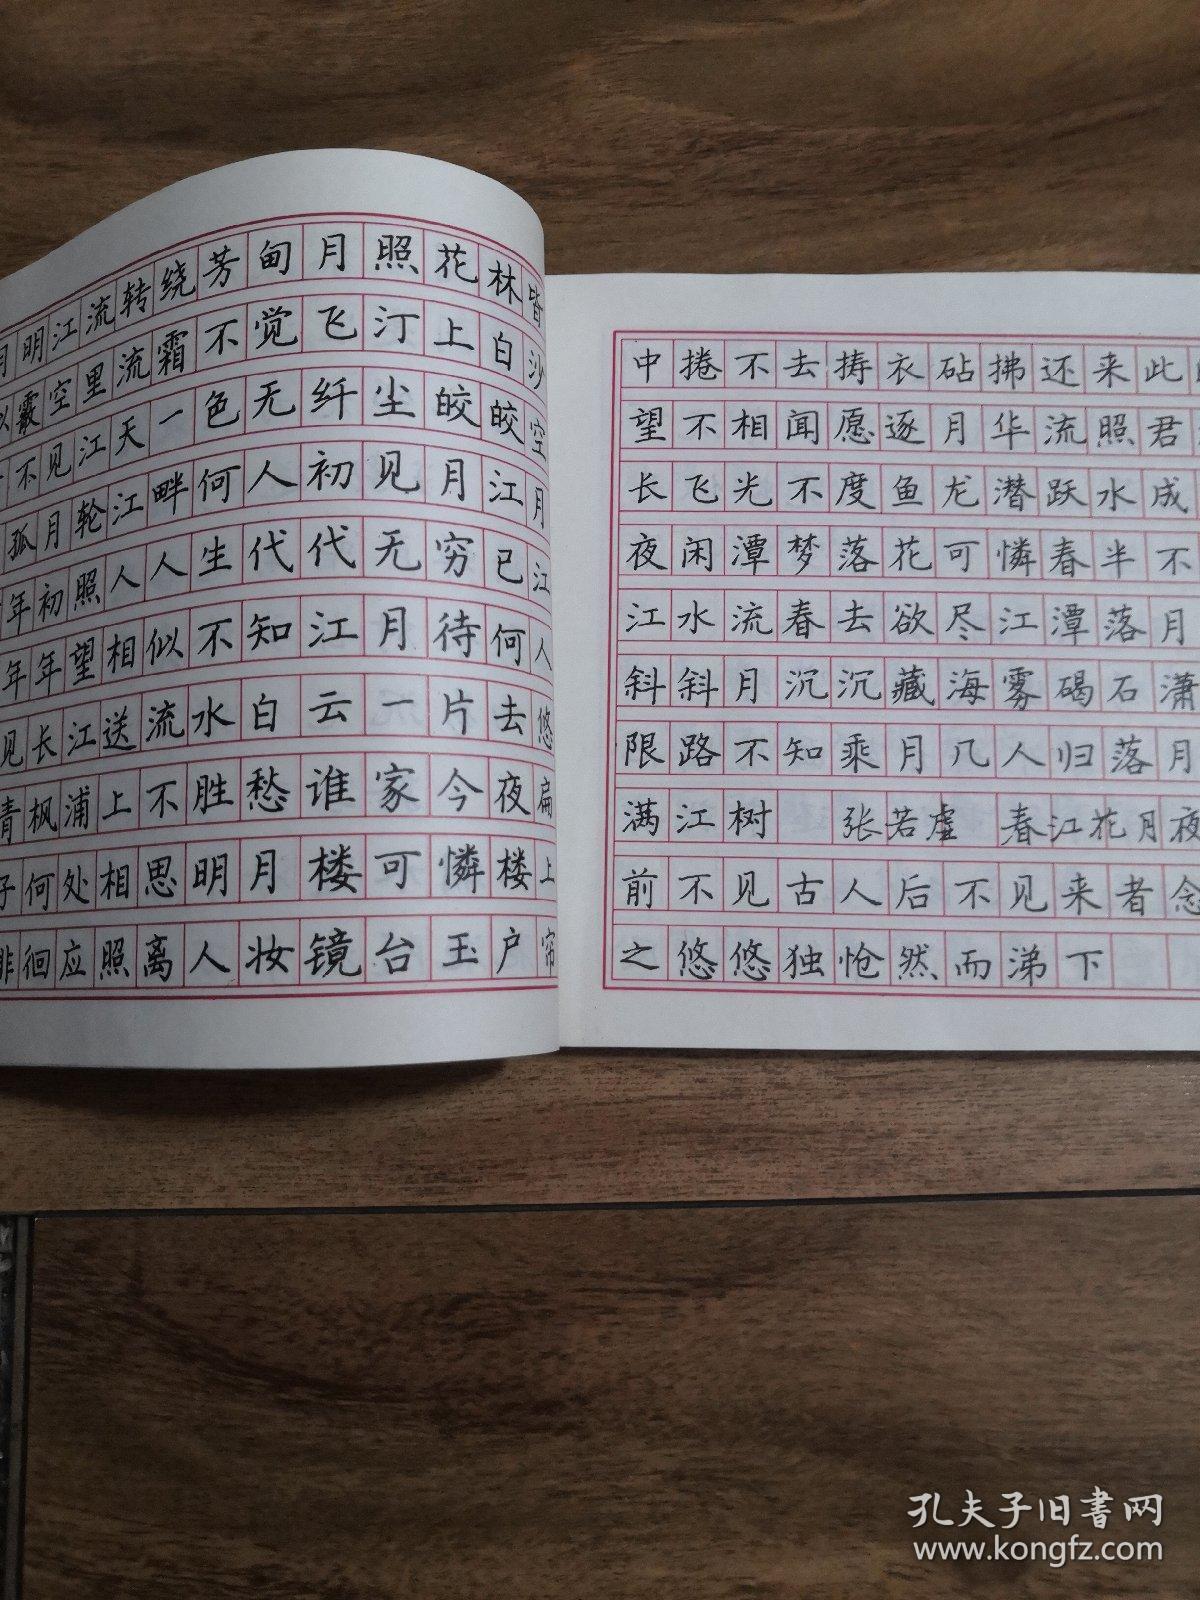 月明江流转绕芳甸月照花林皆
似霰空里流霜不觉飞汀上白沙
不见江天一色无纤尘皎皎空
孤月轮江畔何人初见月江月
年初照人人生代代无穷已江
年年望相似不知江月待何人
见长江送流水白云一片去悠
青枫浦上不胜愁谁家今夜扁
子何处相思明月楼可憐楼上
徘徊应照离人妆镜台玉户帘
中捲不去捣衣砧拂还来此
望不相闻愿逐月华流照君
长飞光不度鱼龙潜跃水成
夜闲潭梦落花可憐春半不
江水流春去欲尽江潭落月
斜斜月沉沉藏海雾碣石潇
限路不知乘月几人归落月
满江树 张若虚 春江花月夜
前不见古人后不见来者念
之悠悠独怆然而涕下
孔夫子旧书网
www.kongfz.com